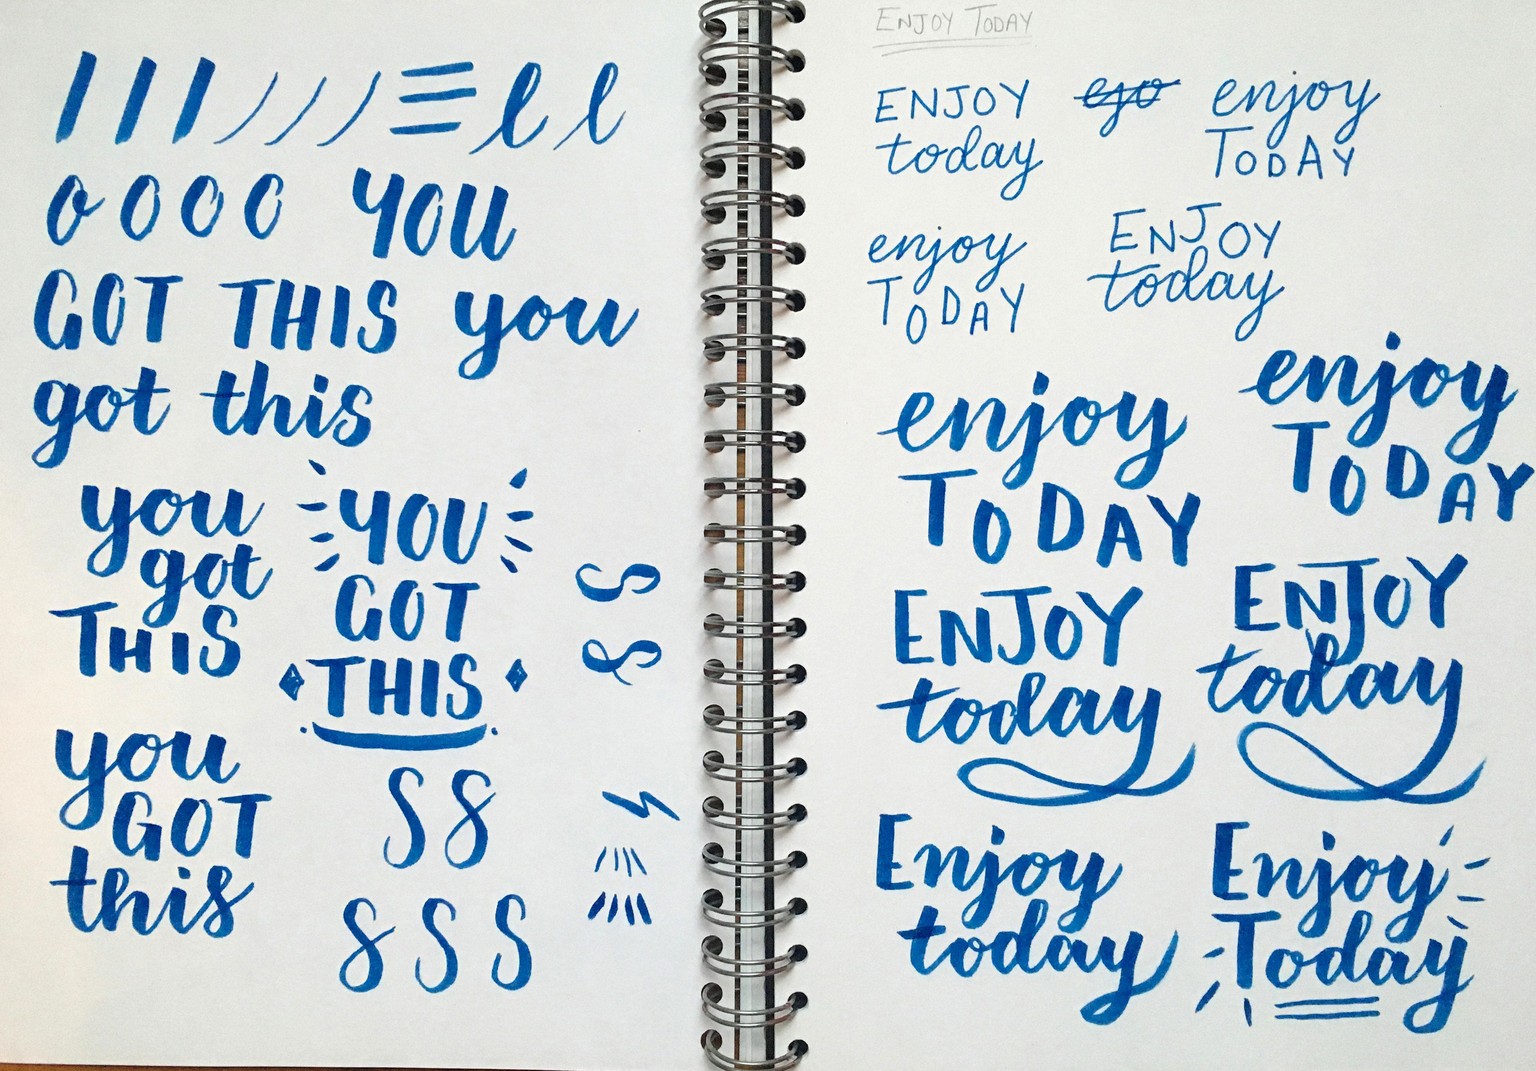 l l
o o o o YOU
GOT THIS you
got this
you
got
THIS
YOU
GOT
THIS
S
S
you
GOT
this
S S
S S S
ENJOY TODAY
ENJOY
today
ejo
enjoy
TODAY
enjoy
TODAY
ENJOY
today
enjoy
TODAY
enjoy
TODAY
ENJOY
today
ENJOY
today
Enjoy
today
Enjoy
Today